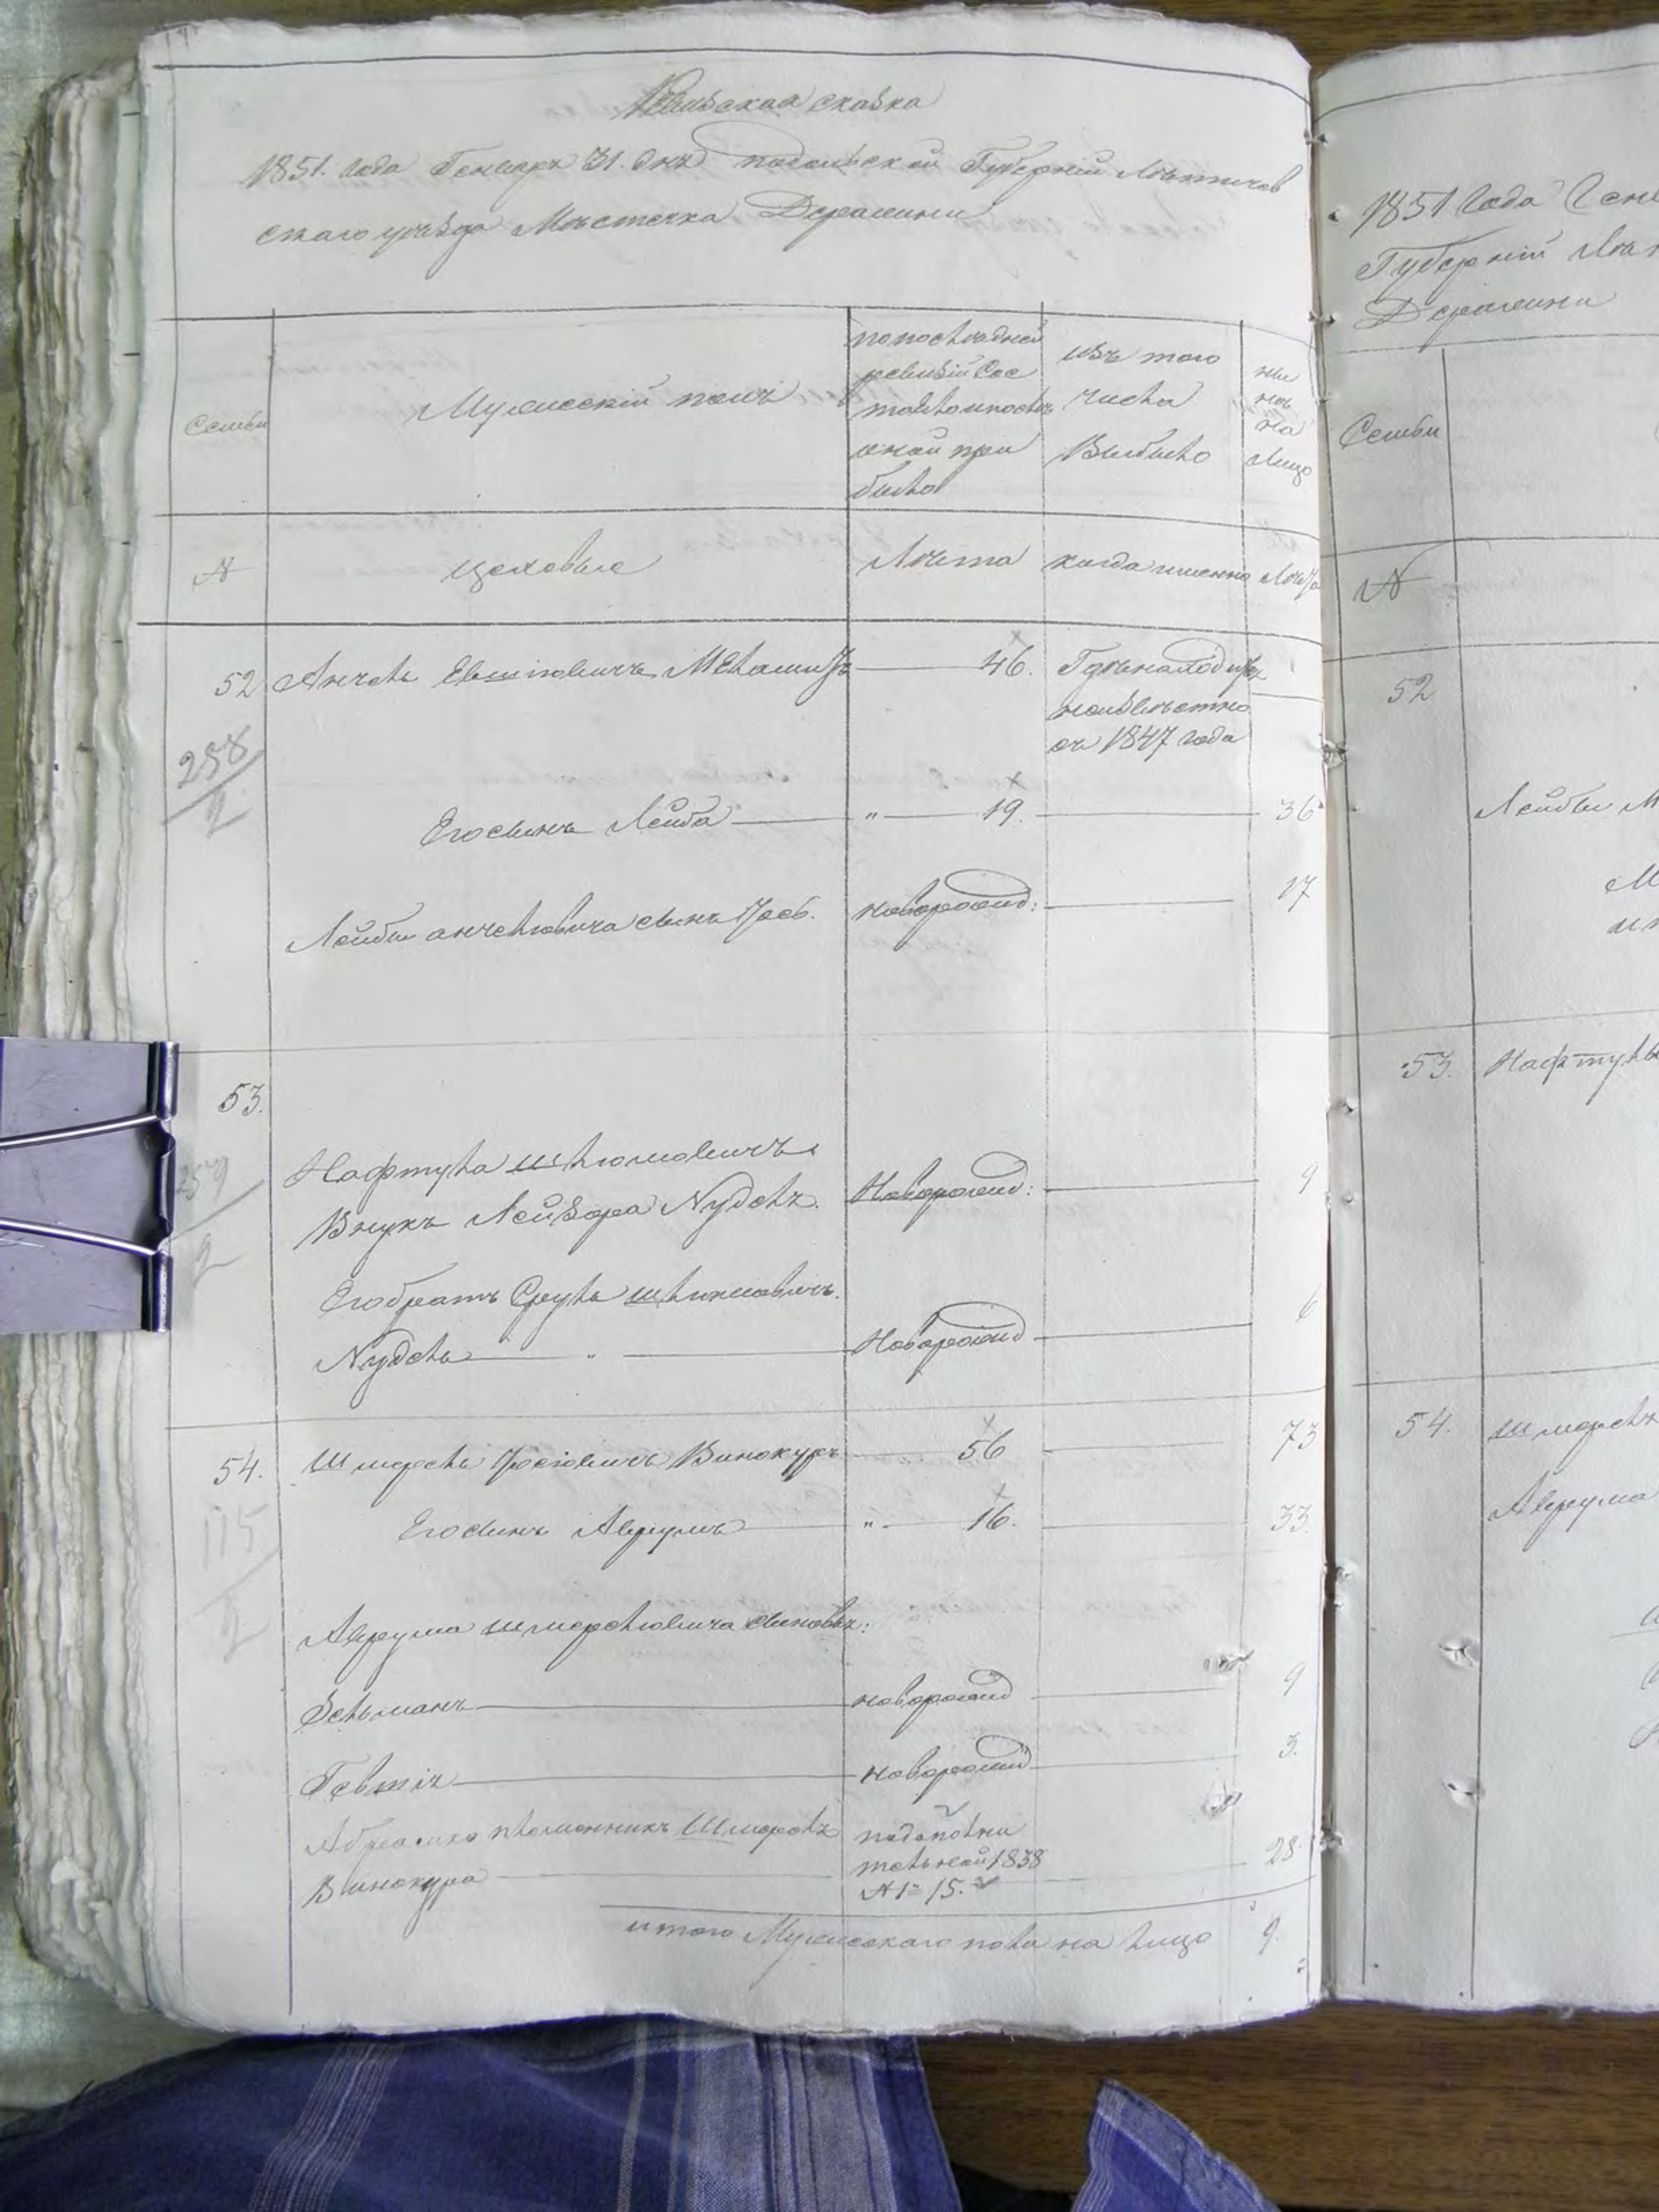 Ревизская сказка
1851. года Генваря 31. дня подольской Губерніи Летичев
скаго уѣзда Мѣстечка Деражни
Семьи
Мужескій полъ
по последней
ревизіи Сос
тояло и послѣ
оной при
было
изъ того
числа
Выбыло
ны
нѣ
на
лицо
№
цеховые
Лѣта
когда именно
Лѣта
52
Анчель Евшіовичъ
46.
неизвѣстно
съ 1847 года
258/2
Его сынъ Лейба
" 19.
36
Лейбы анчеліовича сынъ Іось.
новорожд:
17
53.
259/2
Нафтула Шліомовичъ
Внукъ Лейзора Nуделя.
Новорожд:
9
Его братъ Сруль Шліомовичъ.
Nудель "
Новорожд
6
54.
Шмерель Іосіовичъ Винокуръ
56
73
115/2
Его сынъ Аврумъ
" 16.
33.
Аврума Шмерліовича сыновья:
Зельманъ
новорожд
9
новорожд
3.
племянникъ Шмереля
Винокура
подополни
тельной 1838
№ 15.
28
итого Мужескаго пола на лицо 9.
1851 Года Ген
Губерніи
Деражни
Семьи
№
52
Лейбы М
53.
Нафтулы
54.
Шмереля
Аврума